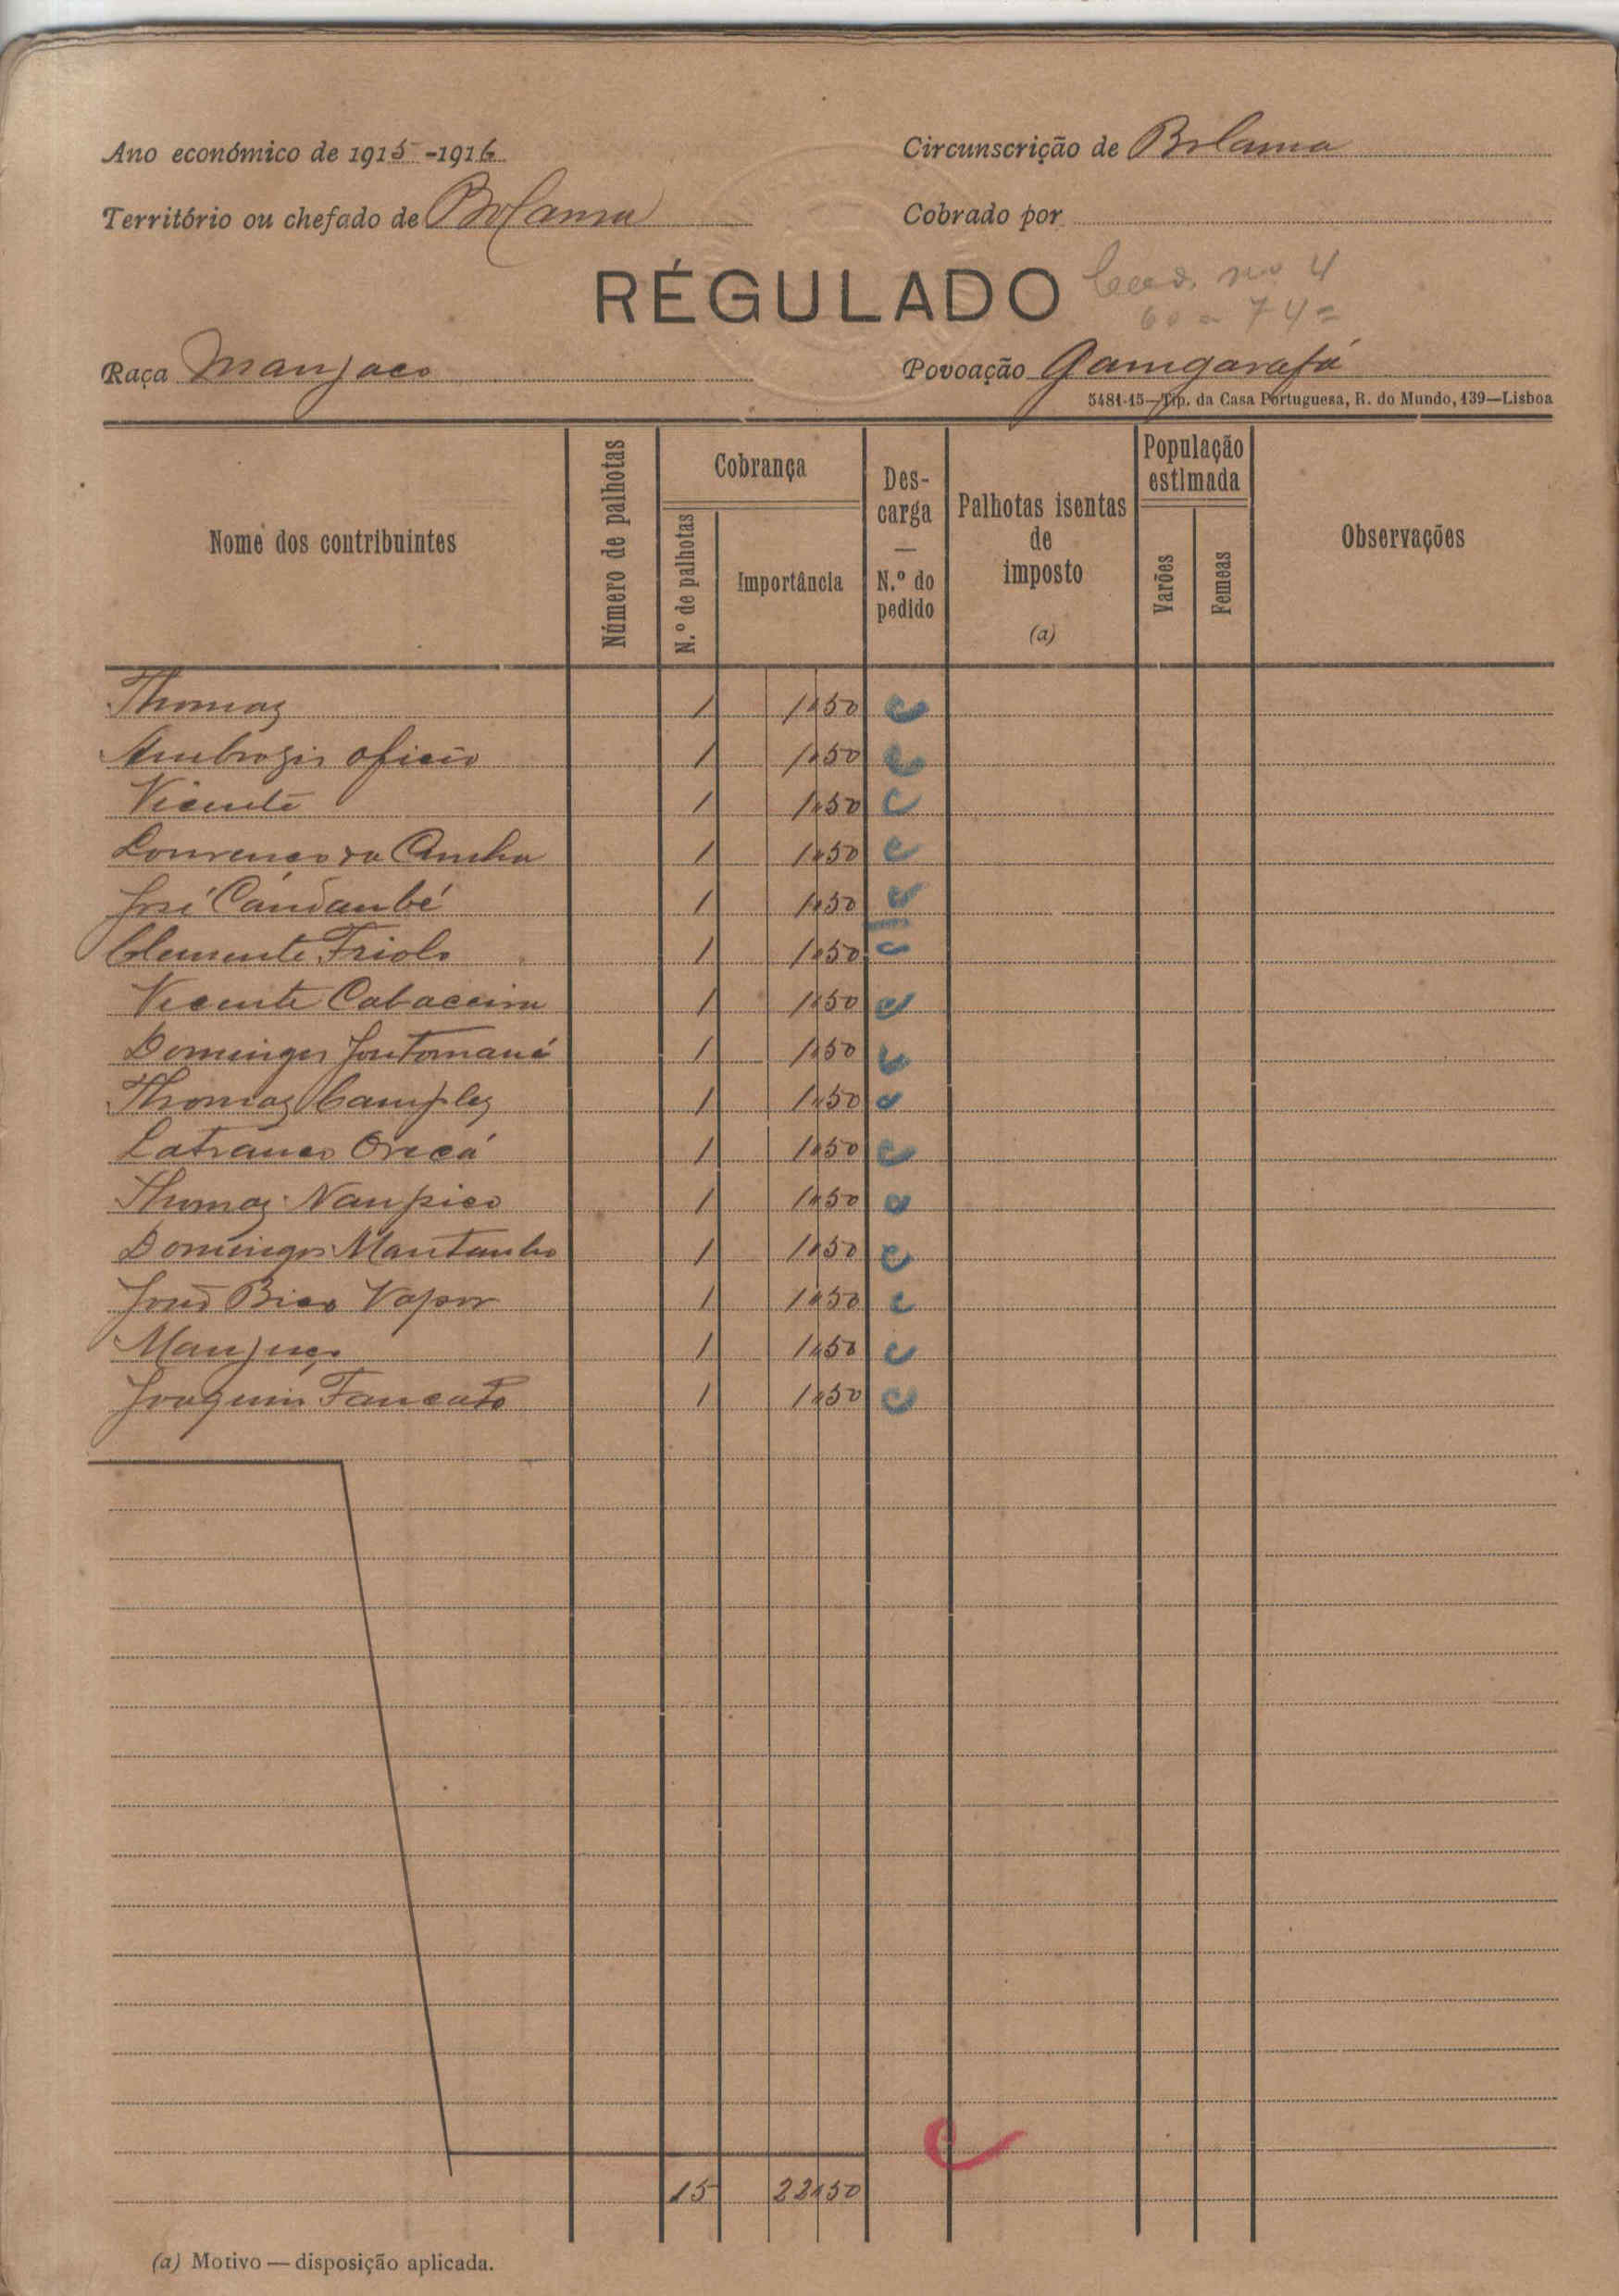 Ano económico de 1915-1916
Circunscrição de Bolama
Território ou chefado de Bolama
Cobrado por
RÉGULADO
nº 4
60 a 74
Raça Manjaco
Povoação Gamgarafá
5481-15—Tip. da Casa Portuguesa, R. do Mundo, 139—Lisboa
Nome dos contribuintes
Número de palhotas
Cobrança
N.º de palhotas
Importância
Descarga — N.º do pedido
Palhotas isentas de imposto (a)
População estimada
Varões
Femeas
Observações
Thomaz 1 1$50
Ambrozio oficio 1 1$50
Vicente 1 1$50
Lourenço da Cunha 1 1$50
José Candanbé 1 1$50
Clemente Friolo 1 1$50
Vicente Cabaceira 1 1$50
Domingos 1 1$50
Thomaz 1 1$50
1 1$50
Thomaz Nanpico 1 1$50
Domingos Mantanho 1 1$50
Bico Vapor 1 1$50
1 1$50
Joaquim Fancato 1 1$50
15 22$50
(a) Motivo — disposição aplicada.